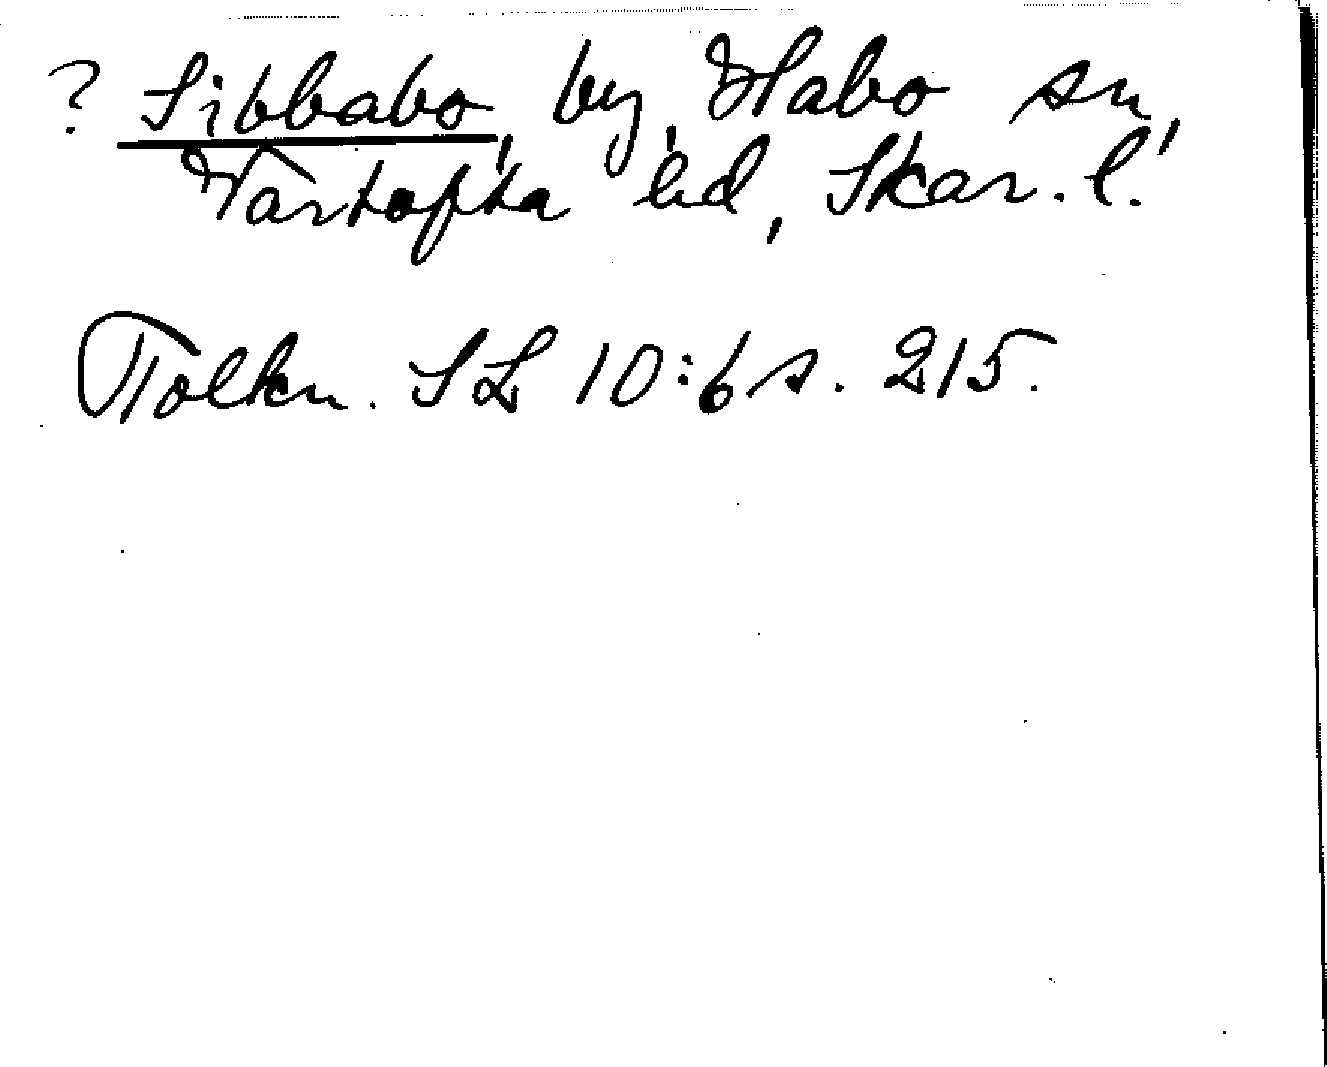 ? Sibbabo, by, Habo sn,
Vartofta hd, Skar. l.
Tolkn. SL 10:6 s. 215.